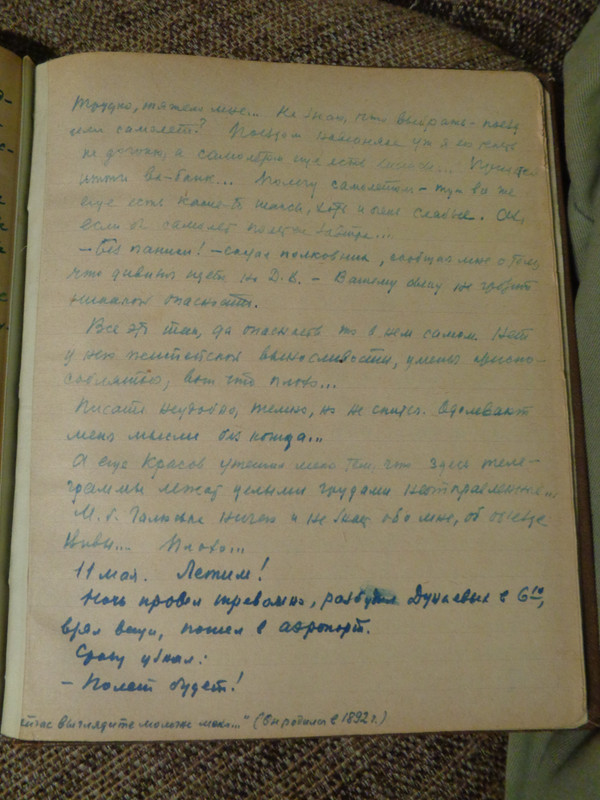 Трудно, тяжело мне... Не знаю, что выбрать - поезд
или самолет? Поездом наверняка уж я его
не догоню, а самолетом еще есть шансы... Придется
итти ва-банк... Полечу самолетом - тут все же
еще есть какие-то шансы, хотя и очень слабые. Ох,
если бы самолет полетел завтра...
- Без паники! - сказал полковник, сообщая мне о том,
что дивизия едет на Д.В. - Вашему сыну не грозит
никакой опасности.
Все это так, да опасность то в нем самом. Нет
у него житейской выносливости, уменья приспо-
собляться, вот что плохо...
Писать неудобно, темно, но не спится. Одолевают
меня мысли без конца...
А еще Красов утешил меня тем, что здесь теле-
граммы лежат целыми грудами неотправленные...
М.б. Галюська ничего и не знает обо мне, об отъезде
Вивы... Плохо...
11 мая. Летим!
Ночь провел тревожно, разбудил Дунаевых в 6 10,
взял вещи, пошел в аэропорт.
Сразу узнал:
- Полет будет!
выглядите моложе меня..." (Вы родились в 1892 г.)